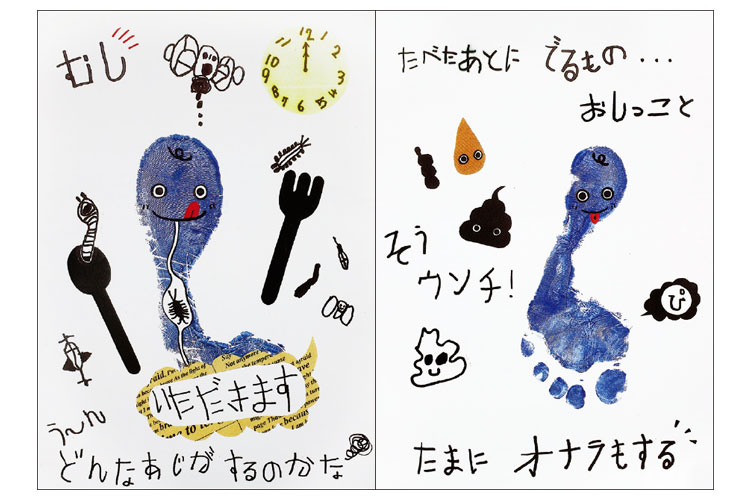 むし
12
1
2
3
4
5
6
7
8
9
10
いただきます
う〜ん
どんなあじが するのかな
たべたあとに でるもの...
おしっこと
そう
ウンチ!
ぴ
たまに オナラもする